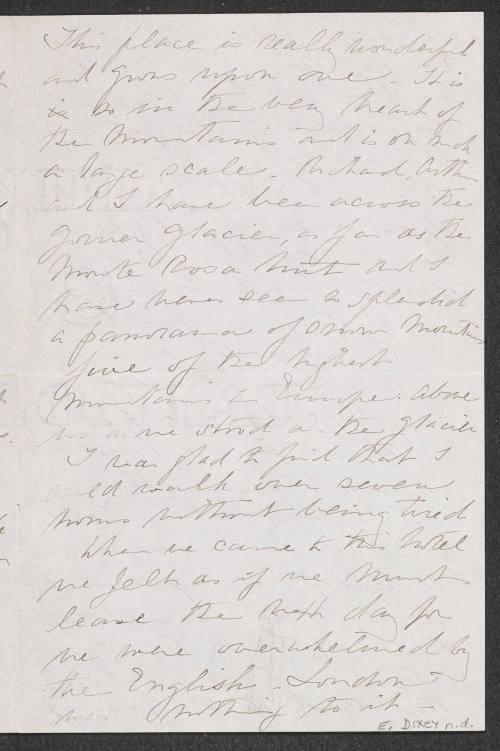 This place is really wonderful
and grows upon one - It is
is so in the very heart of
the mountains and is on such
a large scale. Richard, Arthur
and I have been across the
Gorner Glacier, as far as the
Monte Rosa hut and I
have never seen so splendid
a panorama of snow mountains
five of the highest
mountains in Europe. above
us as we stood on the glacier
I was glad to find that I
could walk over seven
hours without being tired
When we came to this hotel
we felt as if we must
leave the next day for
we were overwhelmed by
the English - London
was nothing to it -
E. Dixey n.d.